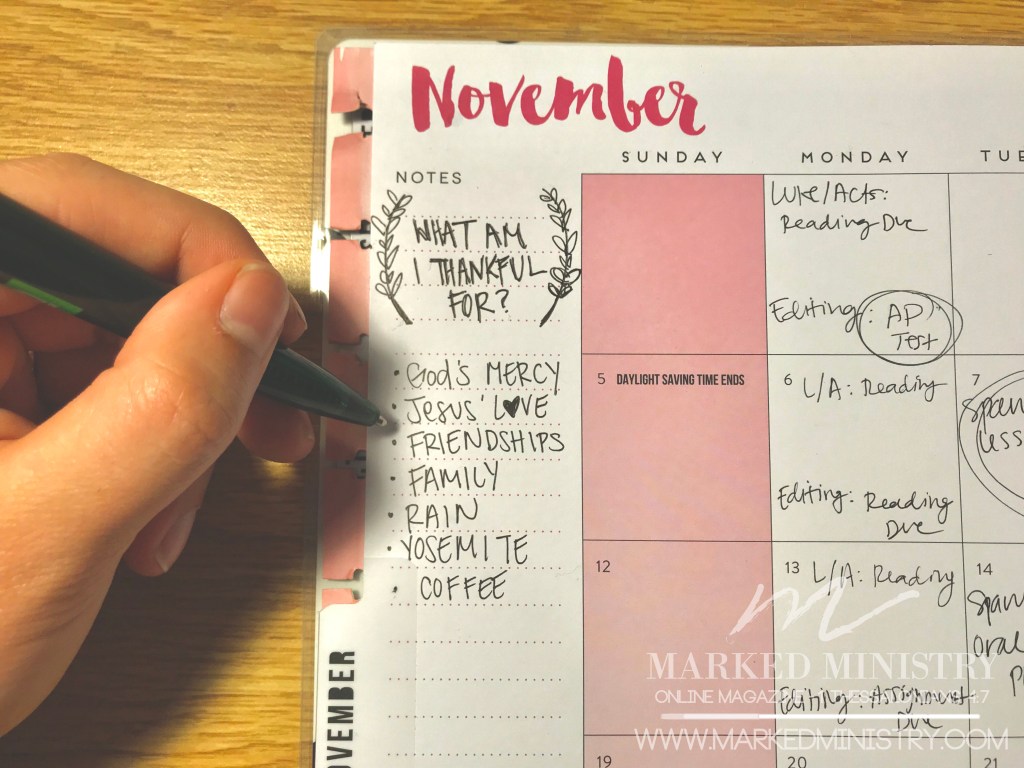 November
SUNDAY MONDAY TUE
NOTES
WHAT AM
I THANKFUL
FOR?
• God's MERCY
• Jesus' L♥VE
• FRIENDSHIPS
• FAMILY
• RAIN
• YOSEMITE
• COFFEE
NOVEMBER
Luke/Acts:
Reading Due
Editing: AP
Test
5 DAYLIGHT SAVING TIME ENDS
6 L/A: Reading
Editing: Reading
Due
7
Span
Less
12
13 L/A: Reading
Editing: Assignment
Due
14
Span
Oral
19
20
21
MARKED MINISTRY
ONLINE MAGAZINE
WWW.MARKEDMINISTRY.COM